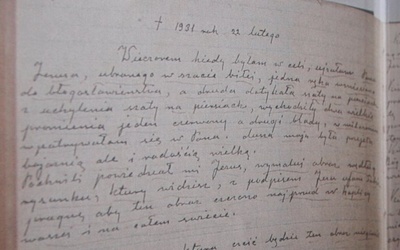 + 1931 rok 22 lutego
Wieczorem kiedy byłam w celi, ujrzałam Pana
Jezusa, ubranego w szacie białej, jedna ręka wzniesiona
do błogosławieństwa, a druga dotykała szaty na piersiach,
z uchylenia szaty na piersiach, wychodziły dwa wielkie
promienie jeden czerwony a drugi blady, w milczeniu
wpatrywałam się w Pana, dusza moja była przejęta
bojaźnią ale i radością wielką.
Po chwili powiedział mi Jezus, wymaluj obraz według
rysunku, który widzisz, z podpisem Jezu ufam Tobie
pragnę, aby ten obraz czczono najprzód w kaplicy
waszej i na całym świecie.
czcić będzie ten obraz